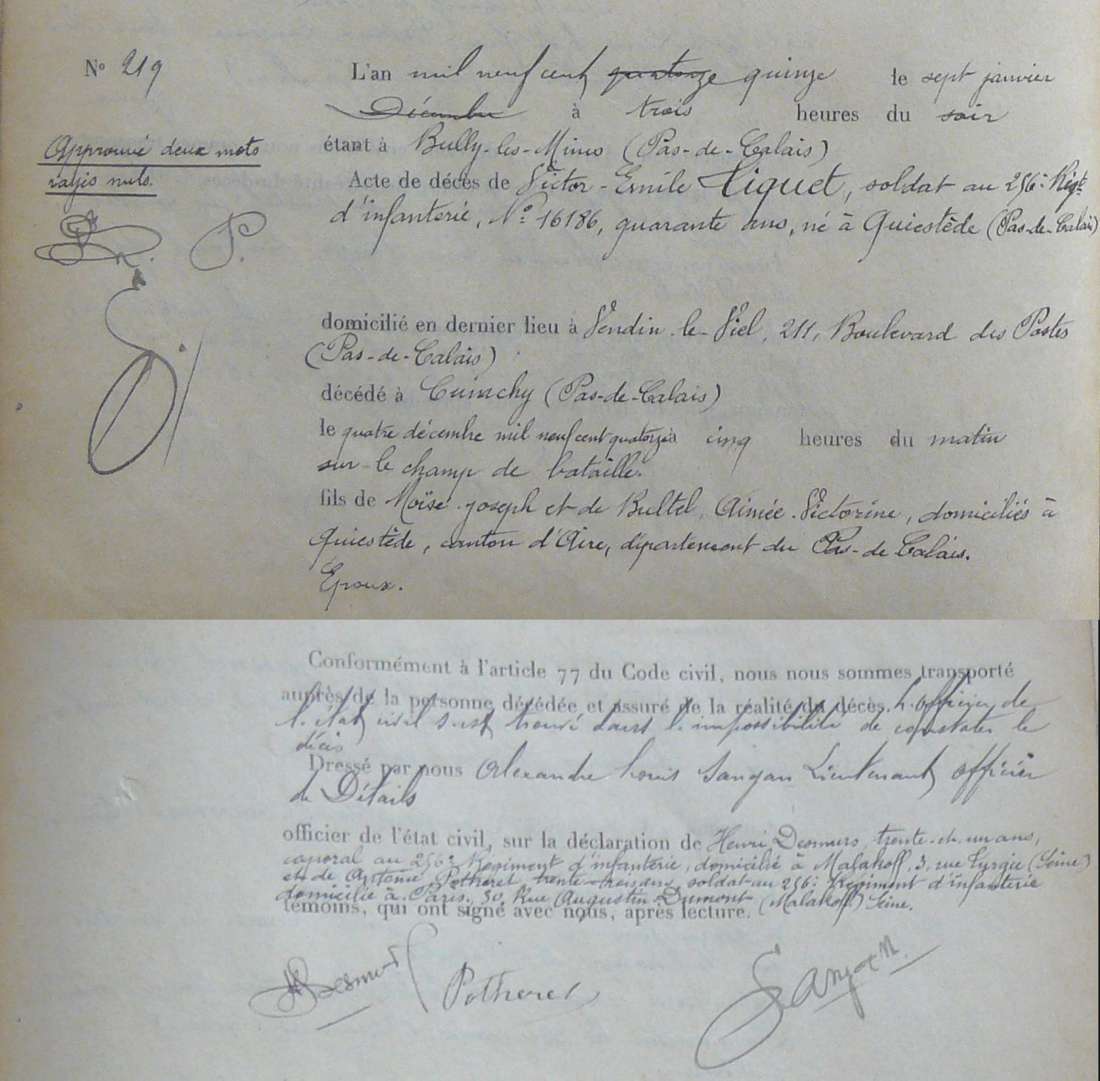 N° 219
L'an mil neuf cent quatorze quinze le sept janvier
Décembre à trois heures du soir
Approuvé deux mots
rayés nuls.
étant à Bully-les-Mines (Pas-de-Calais)
Acte de décès de Victor-Emile Tiquet, soldat au 256e Régt
d'infanterie, N° 16186, quarante ans, né à Quiestède (Pas-de-Calais)
P.
domicilié en dernier lieu à Vendin-le-Viel, 211, Boulevard des Postes
(Pas-de-Calais)
décédé à Cuinchy (Pas-de-Calais)
le quatre décembre mil neuf cent quatorze à cinq heures du matin
sur le champ de bataille.
fils de Moïse-Joseph et de Bultel, Aimée-Victorine, domiciliés à
Quiestède, canton d'Aire, département du Pas-de-Calais.
Epoux.
Conformément à l'article 77 du Code civil, nous nous sommes transporté
auprès de la personne décédée et assuré de la réalité du décès. L'officier de
l'état civil s'est trouvé dans l'impossibilité de constater le
décès
Dressé par nous Alexandre Louis Sanjan Lieutenant officier
de Détails
officier de l'état civil, sur la déclaration de Henri Desmurs, trente-et-un ans,
caporal au 256e Régiment d'infanterie, domicilié à Malakoff, 3, rue (Seine)
et de Antoine Potheret, trente-trois ans, soldat au 256e Régiment d'infanterie
domicilié à Paris, 30, Rue Augustin-Dumont (Malakoff) Seine.
témoins, qui ont signé avec nous, après lecture.
Desmurs Potheret Sanjan